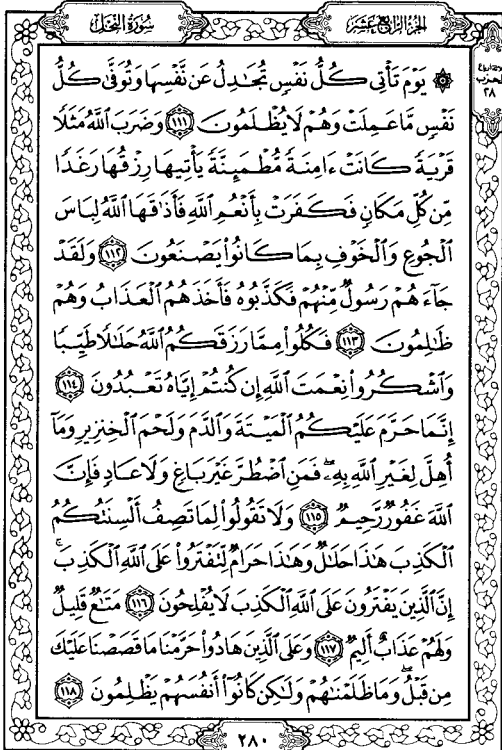 الجزء الرابع عشر
سورة النحل
۞ يَوْمَ تَأْتِي كُلُّ نَفْسٍ تُجَادِلُ عَن نَّفْسِهَا وَتُوَفَّىٰ كُلُّ
نَفْسٍ مَّا عَمِلَتْ وَهُمْ لَا يُظْلَمُونَ ١١١ وَضَرَبَ اللَّهُ مَثَلًا
قَرْيَةً كَانَتْ ءَامِنَةً مُّطْمَئِنَّةً يَأْتِيهَا رِزْقُهَا رَغَدًا
مِّن كُلِّ مَكَانٍ فَكَفَرَتْ بِأَنْعُمِ اللَّهِ فَأَذَاقَهَا اللَّهُ لِبَاسَ
الْجُوعِ وَالْخَوْفِ بِمَا كَانُوا يَصْنَعُونَ ١١٢ وَلَقَدْ
جَاءَهُمْ رَسُولٌ مِّنْهُمْ فَكَذَّبُوهُ فَأَخَذَهُمُ الْعَذَابُ وَهُمْ
ظَالِمُونَ ١١٣ فَكُلُوا مِمَّا رَزَقَكُمُ اللَّهُ حَلَالًا طَيِّبًا
وَاشْكُرُوا نِعْمَتَ اللَّهِ إِن كُنتُمْ إِيَّاهُ تَعْبُدُونَ ١١٤
إِنَّمَا حَرَّمَ عَلَيْكُمُ الْمَيْتَةَ وَالدَّمَ وَلَحْمَ الْخِنزِيرِ وَمَا
أُهِلَّ لِغَيْرِ اللَّهِ بِهِ ۖ فَمَنِ اضْطُرَّ غَيْرَ بَاغٍ وَلَا عَادٍ فَإِنَّ
اللَّهَ غَفُورٌ رَّحِيمٌ ١١٥ وَلَا تَقُولُوا لِمَا تَصِفُ أَلْسِنَتُكُمُ
الْكَذِبَ هَٰذَا حَلَالٌ وَهَٰذَا حَرَامٌ لِّتَفْتَرُوا عَلَى اللَّهِ الْكَذِبَ ۚ
إِنَّ الَّذِينَ يَفْتَرُونَ عَلَى اللَّهِ الْكَذِبَ لَا يُفْلِحُونَ ١١٦ مَتَاعٌ قَلِيلٌ
وَلَهُمْ عَذَابٌ أَلِيمٌ ١١٧ وَعَلَى الَّذِينَ هَادُوا حَرَّمْنَا مَا قَصَصْنَا عَلَيْكَ
مِن قَبْلُ ۖ وَمَا ظَلَمْنَاهُمْ وَلَٰكِن كَانُوا أَنفُسَهُمْ يَظْلِمُونَ ١١٨
الحزب
٢٨
٢٨٠